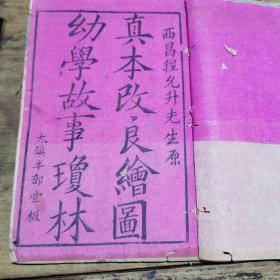 西昌程允升先生原
真本改良繪圖
幼學故事瓊林
太鎮半部堂板